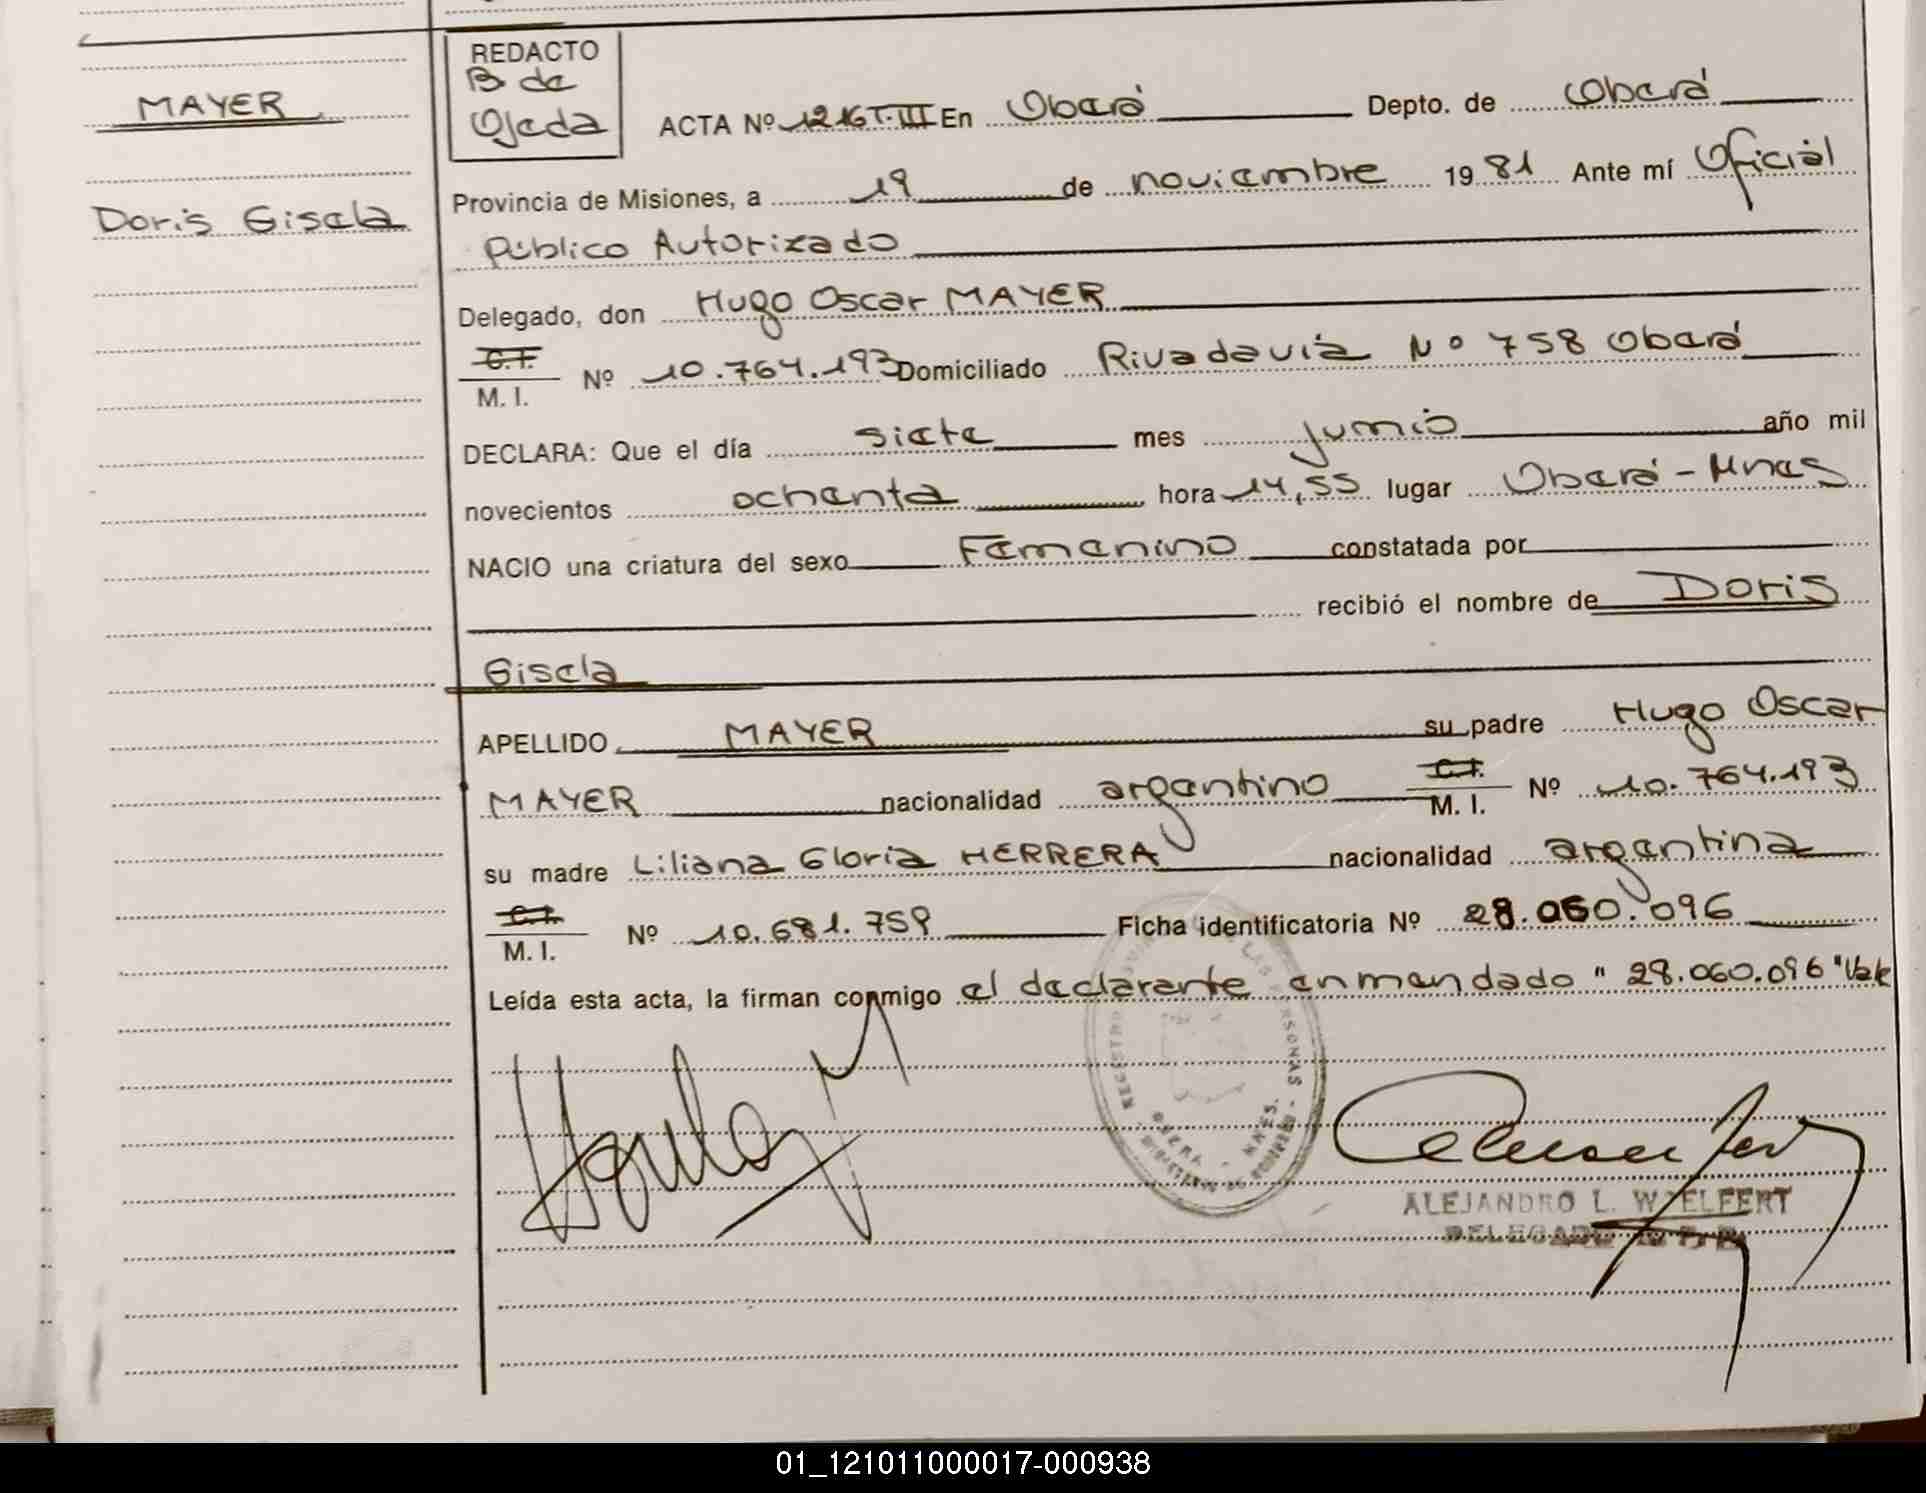 MAYER
Doris Gisela
REDACTO
B de
Ojeda
ACTA Nº 1216 T.III En Oberá Depto. de Oberá
Provincia de Misiones, a 19 de noviembre 1981 Ante mí Oficial
Público Autorizado
Delegado, don Hugo Oscar MAYER
C.I.
M. I. Nº 10.764.193 Domiciliado Rivadavia Nº 758 Oberá
DECLARA: Que el día siete mes junio año mil
novecientos ochenta hora 14,55 lugar Oberá - Mnes
NACIO una criatura del sexo Femenino constatada por
recibió el nombre de Doris
Gisela
APELLIDO MAYER su padre Hugo Oscar
MAYER nacionalidad argentino C.I. M. I. Nº 10.764.193
su madre Liliana Gloria HERRERA nacionalidad argentina
C.I.
M. I. Nº 10.681.759 Ficha identificatoria Nº 28.060.096
Leída esta acta, la firman conmigo el declarante enmendado "28.060.096" Vale
OBERA - MNES.
ALEJANDRO L. WOELFERT
DELEGADO
01_121011000017-000938